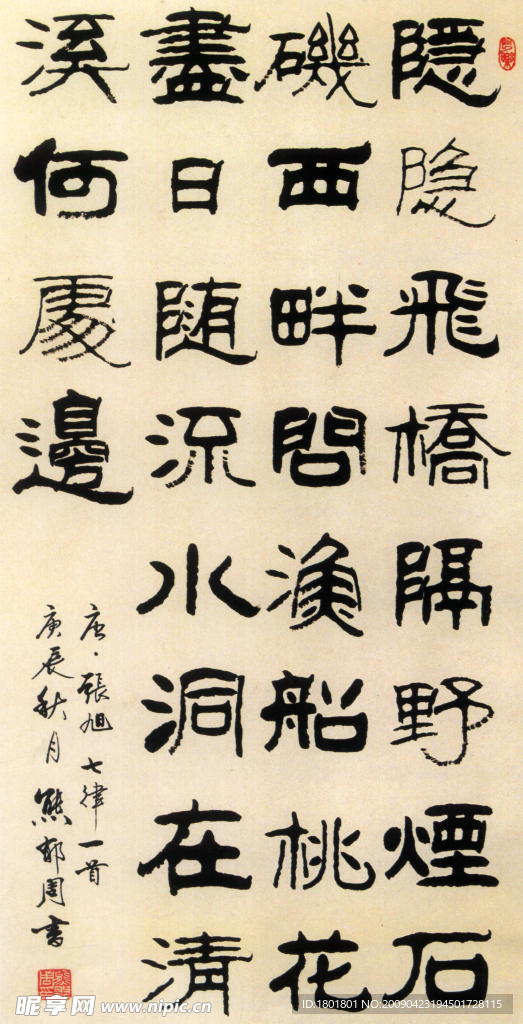 隱隐飛橋隔野煙石
磯西畔問漁船桃花
盡日随流水洞在清
溪何處邊
唐·張旭七律一首
庚辰秋月熊郁周書
昵享网 www.nipic.cn
ID:1801801 NO:20090423194501728115